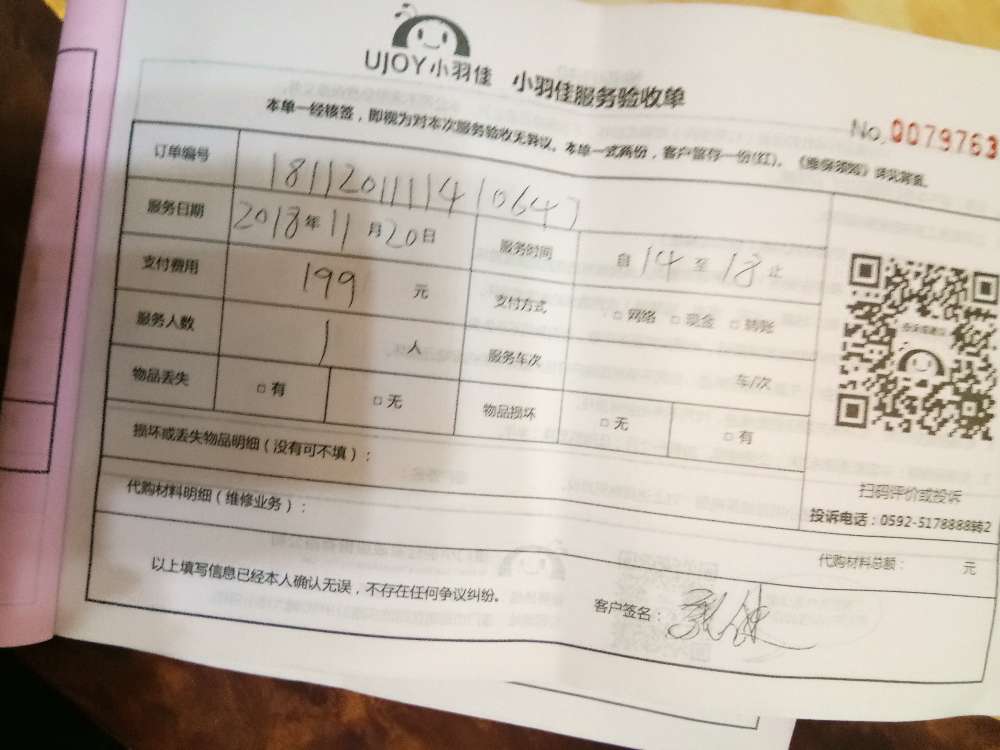 UJOY小羽佳 小羽佳服务验收单
No.0079763
本单一经核签，即视为对本次服务验收无异议。本单一式两份，客户留存一份(红)。《维保须知》详见背面。
订单编号 181120111410647
服务日期 2018年11月20日 服务时间 自14至18止
支付费用 199 元 支付方式 □网络 □现金 □转账
服务人数 1 人 服务车次 车/次
物品丢失 □有 □无 物品损坏 □无 □有
损坏或丢失物品明细（没有可不填）：
扫码评价或投诉
投诉电话：0592-5178888转2
代购材料明细（维修业务）：
代购材料总额： 元
以上填写信息已经本人确认无误，不存在任何争议纠纷。
客户签名：